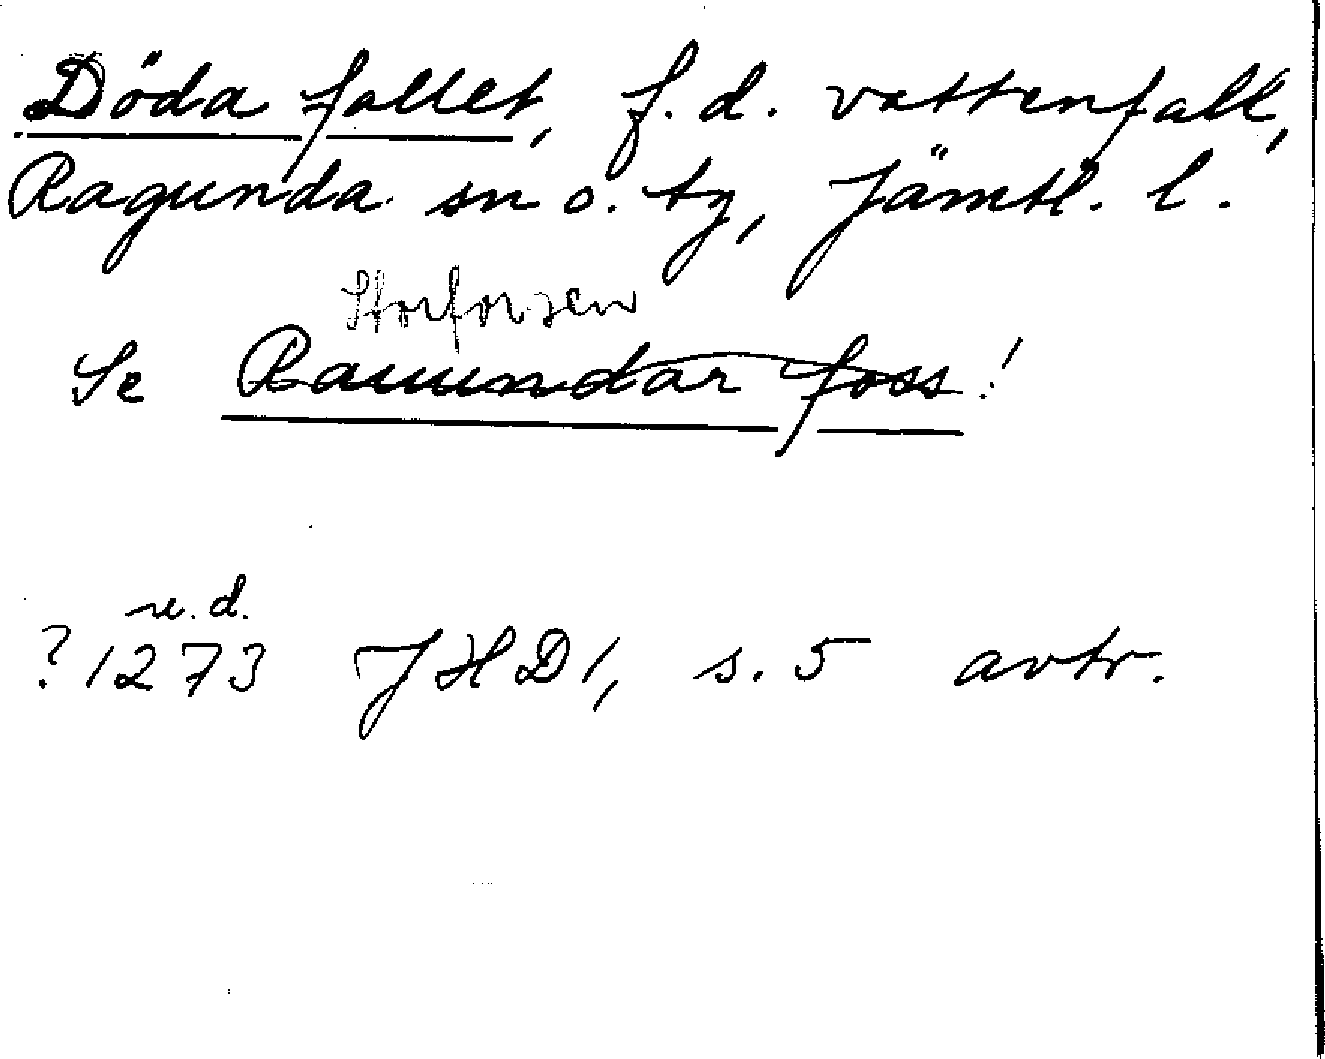 Döda fallet, f.d. vattenfall,
Ragunda sn o. tg, Jämtl. l.
Storforsen
Se Ramundar foss!
u.d.
?1273 JHD1, s. 5 avtr.